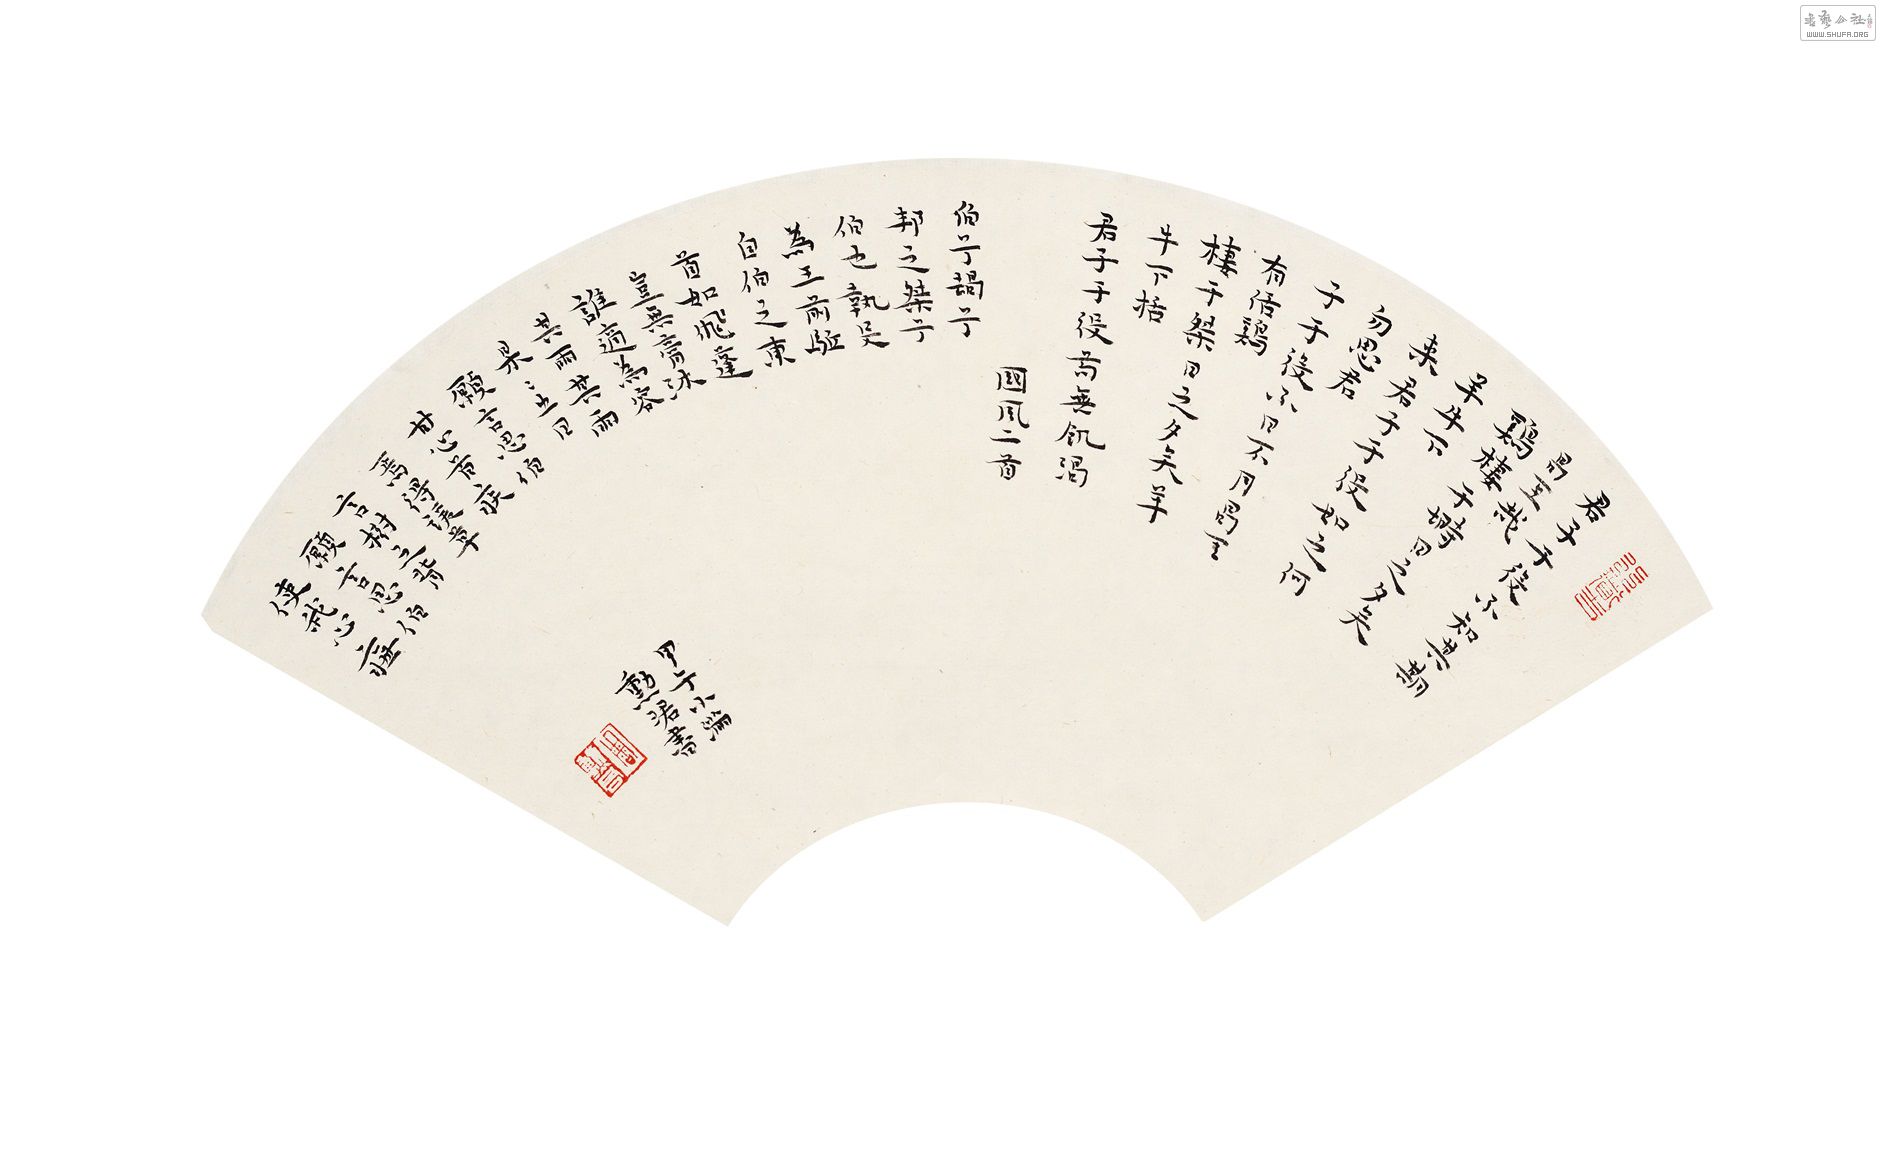 君子于役不知其期
曷至哉
鷄棲于塒日之夕矣
羊牛下
来君子于役如之何
勿思君
子于役不日不月曷至
有佸鷄
棲于桀日之夕矣羊
牛下括
君子于役苟無飢渴
國風二首
伯兮朅兮
邦之桀兮
伯也執殳
為王前驅
自伯之東
首如飛蓬
豈無膏沐
誰適為容
其雨其雨
杲〻出日
願言思伯
甘心首疾
焉得諼草
言樹之背
願言思伯
使我心痗
甲午小滿
勳珺書
書藝公社
WWW.SHUFA.ORG